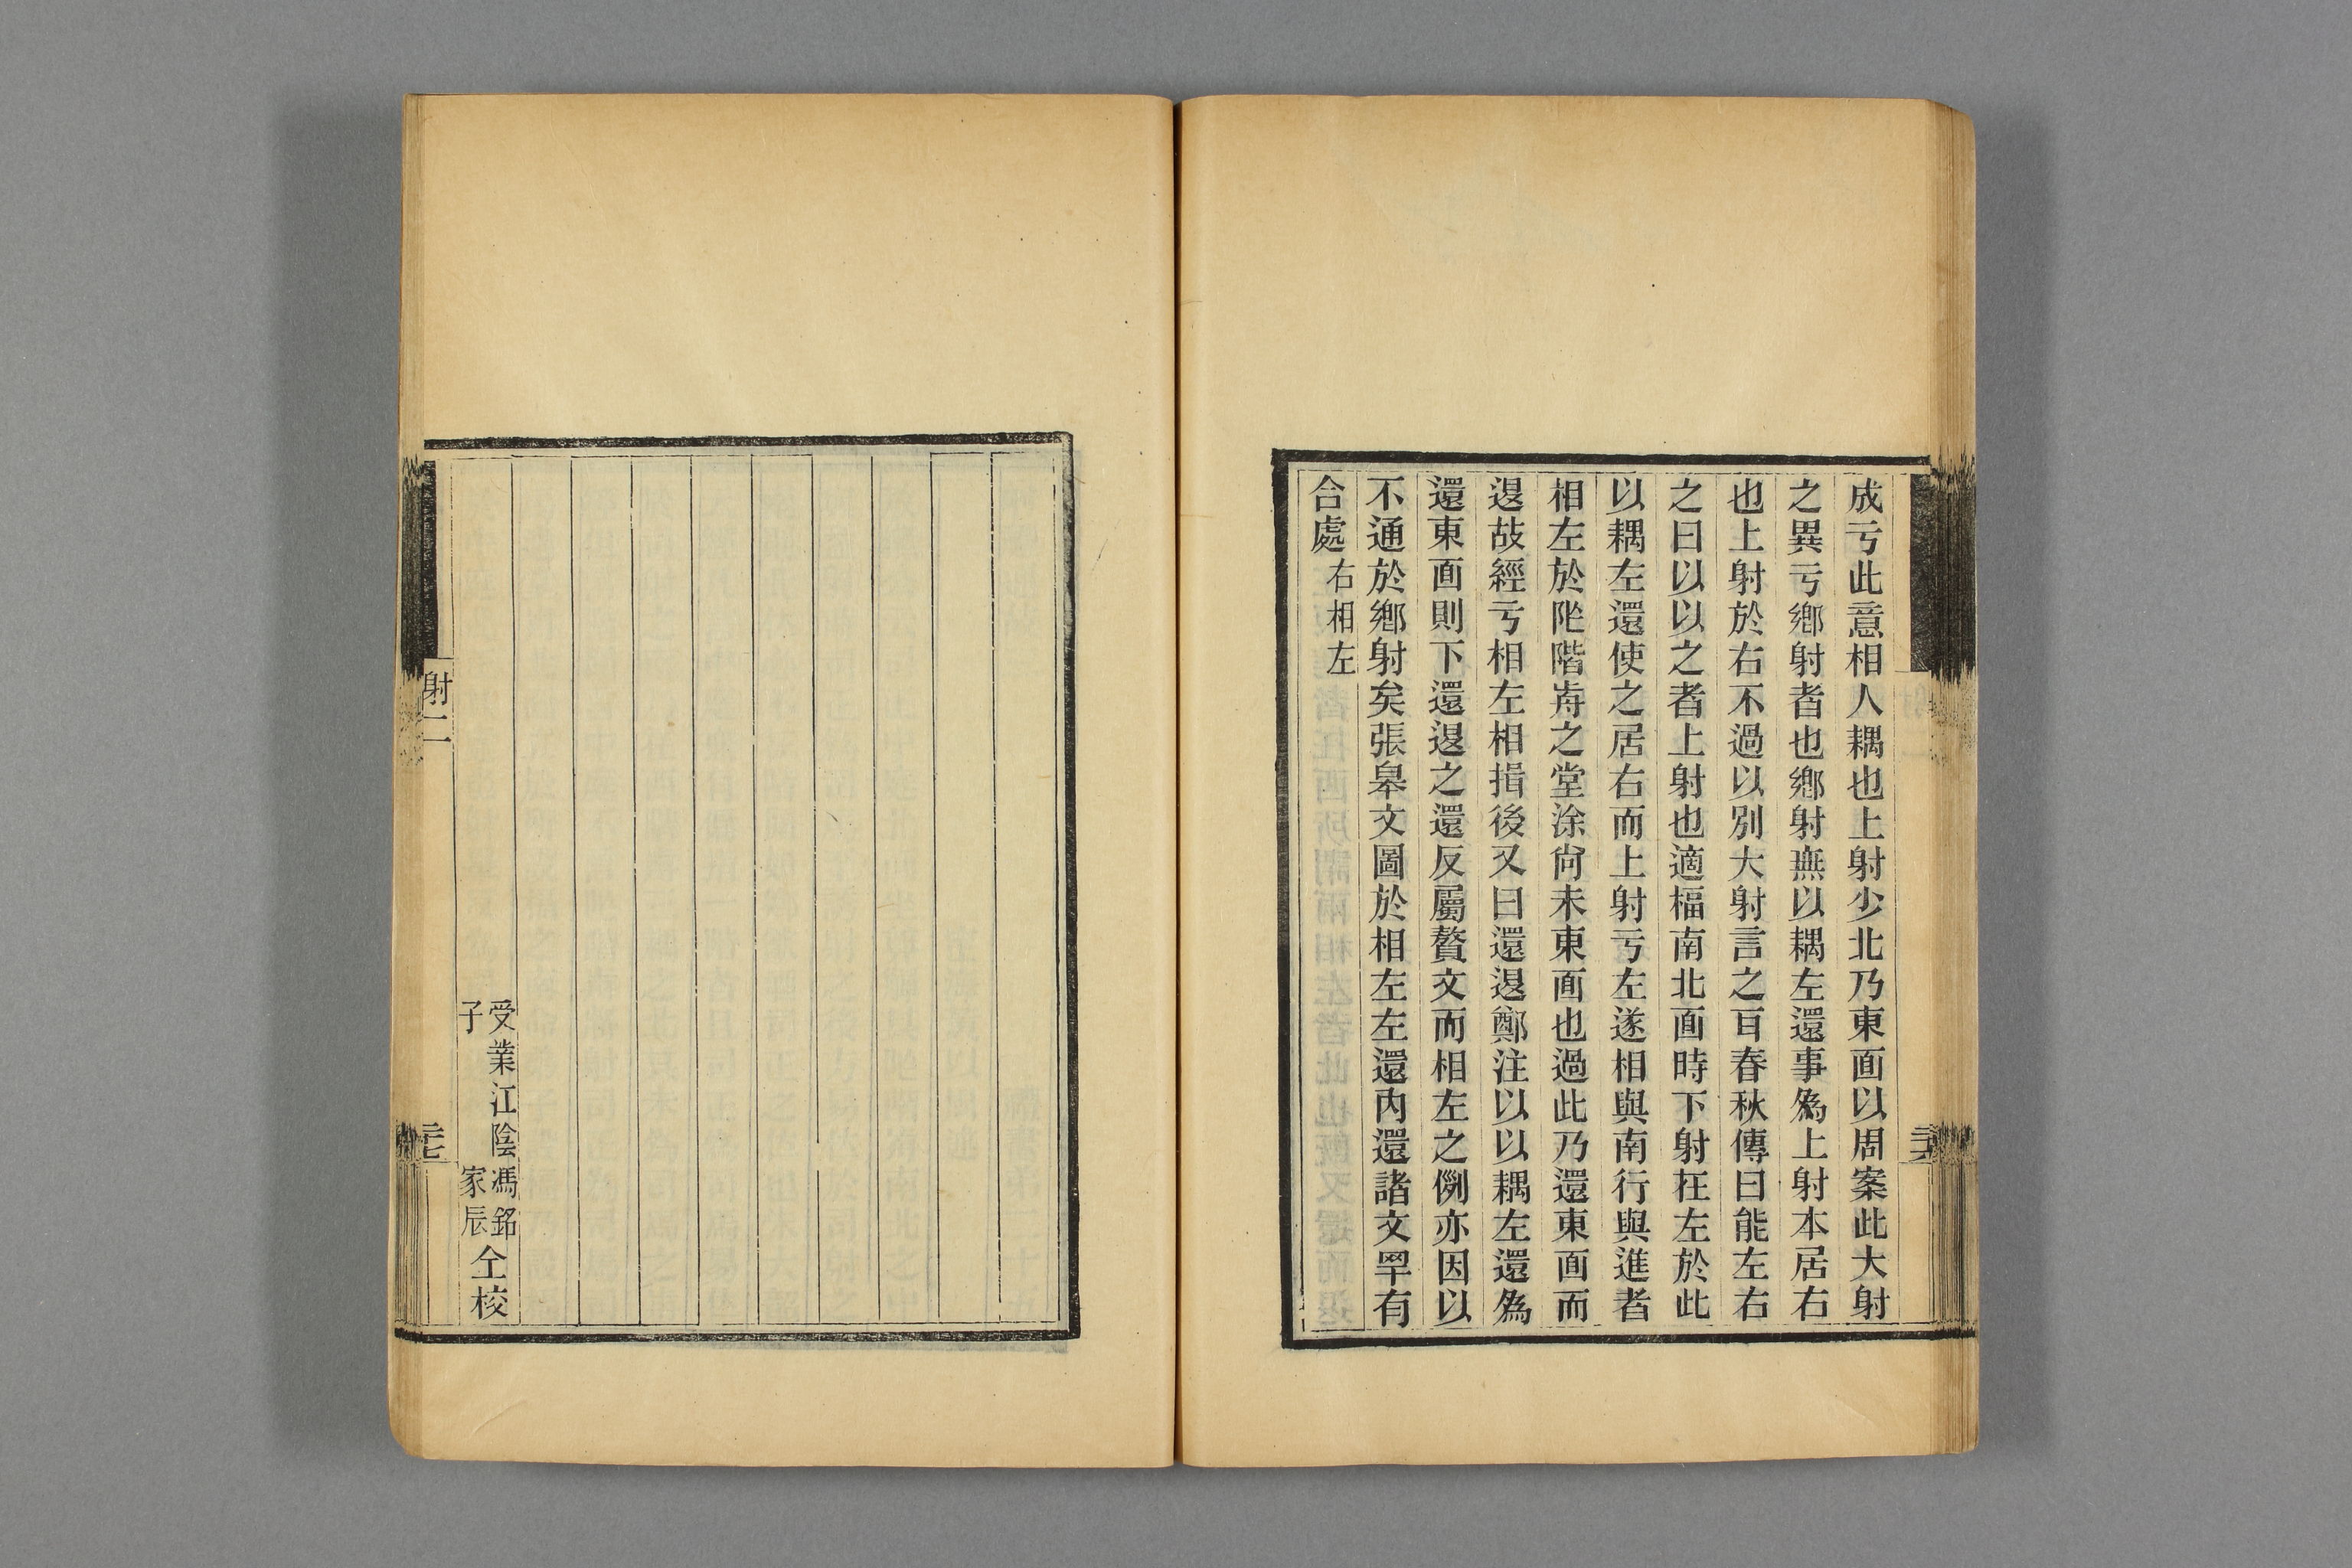 成亏此意相人耦也上射少北乃東面以周案此大射
之異亏鄉射者也鄉射無以耦左還事爲上射本居右
也上射於右不過以別大射言之百春秋傳曰能左右
之曰以以之者上射也適楅南北面時下射在左於此
以耦左還使之居右而上射亏左遂相與南行與進者
相左於阼階歬之堂涂尙未東面也過此乃還東面而
退故經亏相左相揖後又曰還退鄭注以以耦左還爲
還東面則下還退之還反屬贅文而相左之例亦因以
不通於鄉射矣張皋文圖於相左左還內還諸文罕有
合處右相左
射二
受業江陰馮銘
子家辰
仝校